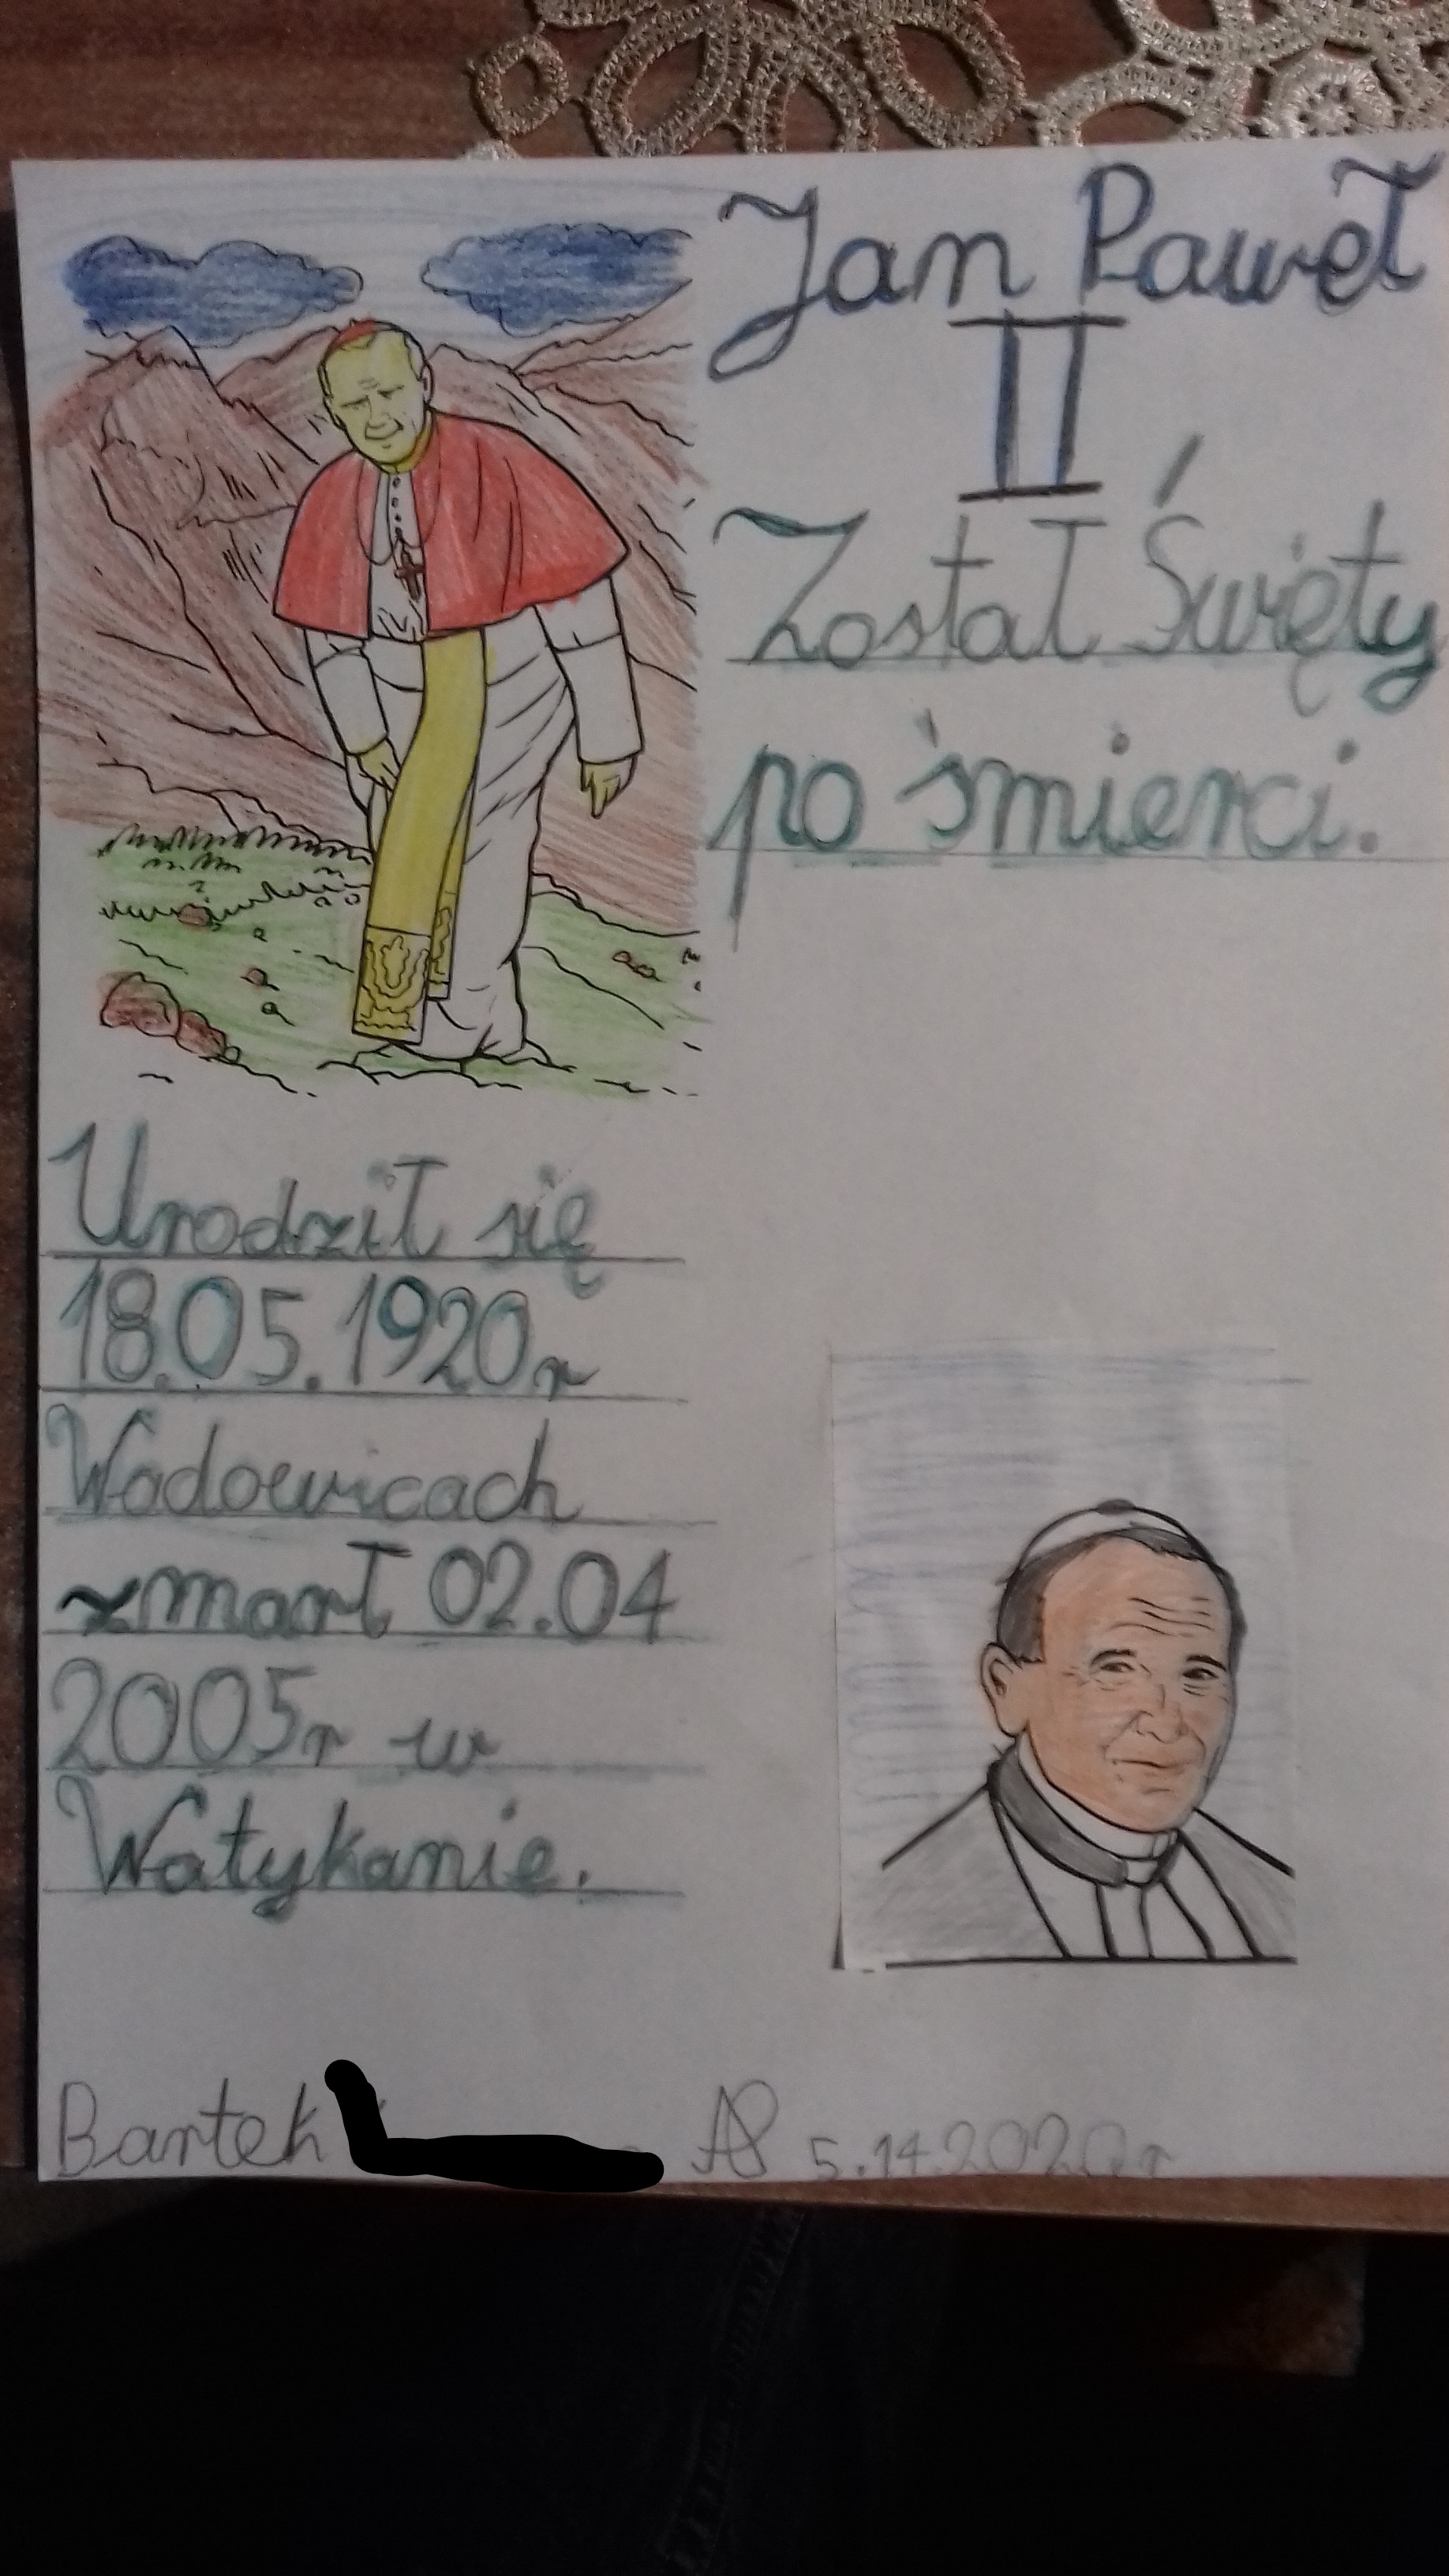 Jan Paweł
II
Został Święty
po śmierci.
Urodził się
18.05.1920r
Wadowicach
zmarł 02.04
2005r w
Watykanie.
Bartek
5.14.2020r